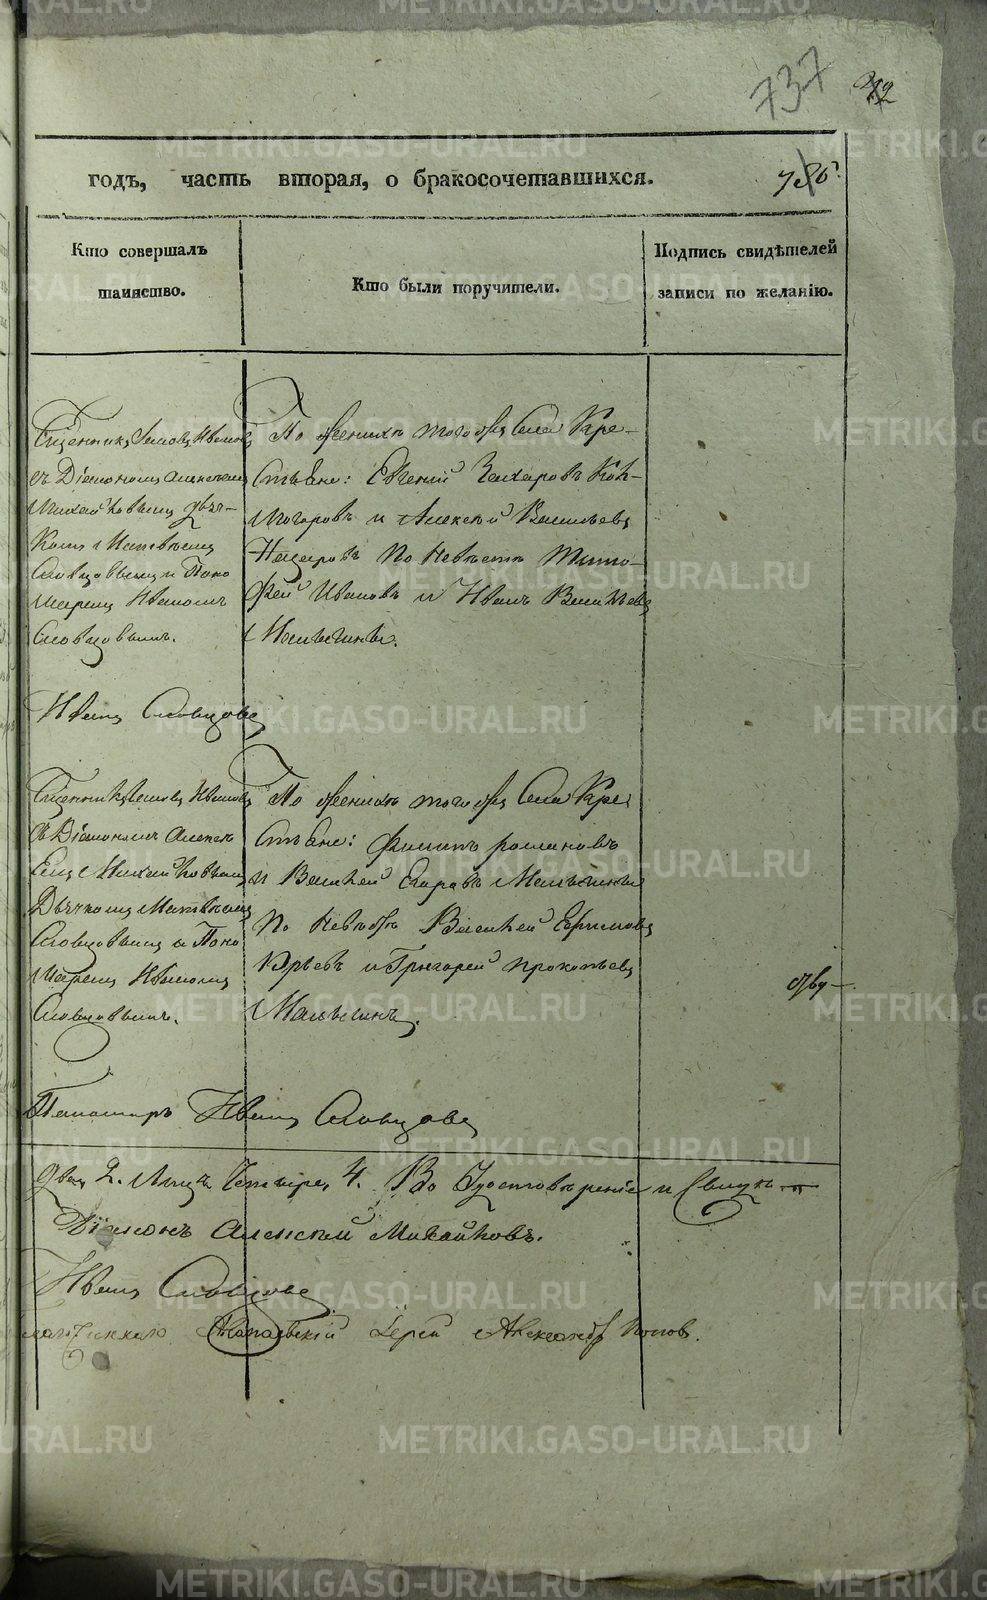 737
годъ, часть вторая, о бракосочетавшихся.
Кто совершалъ таинство.
Кто были поручители.
Подпись свидѣтелей записи по желанію.
Священникъ Иванъ
съ Діакономъ Алексѣемъ
Михайловымъ дьяч-
комъ Матвѣемъ
Словцовымъ и Поно
маремъ Иваномъ
Словцовымъ.
По женихѣ тогожъ Села Кре-
стьяне: Евгеній Захаровъ
и Алексѣй Васильевъ
По невѣстѣ Тимо-
фей Ивановъ и Иванъ Васильевъ
Мальгины.
Иванъ Словцовъ
Священникъ Ивановъ
съ Діакономъ Алексѣ
емъ Михайловымъ
Дьячкомъ Матвѣемъ
Словцовымъ и Поно
маремъ Иваномъ
Словцовымъ.
По женихѣ тогожъ Села Кре
стьяне: Филипъ Романовъ
и Василей Егоровъ Мальгины
По невѣстѣ Василей Ефимовъ
Юрьевъ и Григорей Прокопьевъ
Мальгинъ.
Пономарь Иванъ Словцовъ
два, 2. лицъ Четыре, 4. Во Удостовѣреніе и
Діаконъ Алексѣй Михайловъ.
Иванъ Словцовъ
Іерей Александръ Поповъ.